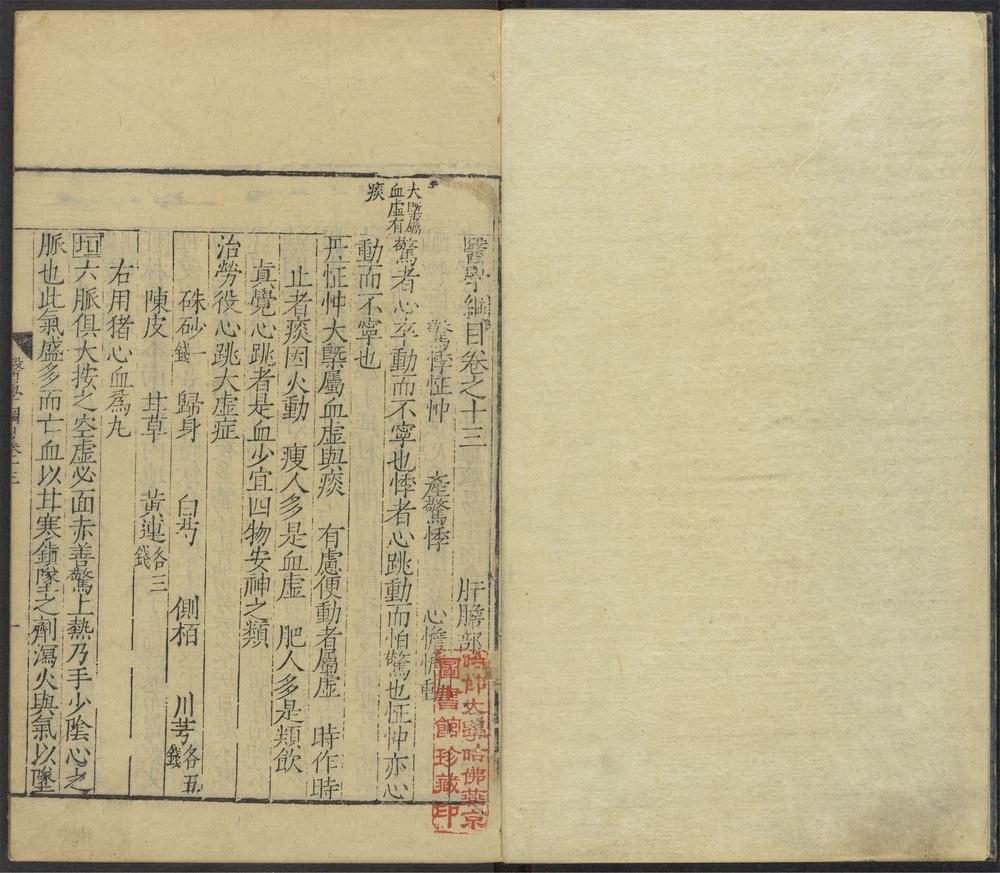 醫學綱目卷之十三　肝膽部
驚悸怔忡　產驚悸　心憺憺動
驚者心卒動而不寧也悸者心跳動而怕驚也怔忡亦心
動而不寧也
大槩屬
血虛有
痰
丹怔忡大槩屬血虛與痰　有慮便動者屬虛　時作時
止者痰因火動　瘦人多是血虛　肥人多是類飲
真覺心跳者是血少宜四物安神之類
治勞役心跳大虛症
硃砂一錢　歸身　白芍　側栢　川芎各五錢
陳皮　甘草　黃連各三錢
右用猪心血爲丸
垣六脈俱大按之空虛必面赤善驚上熱乃手少陰心之
脈也此氣盛多而亡血以甘寒鎮墜之劑瀉火與氣以墜
醫學綱目卷十三
一
哈佛大學哈佛燕京
圖書館珍藏印